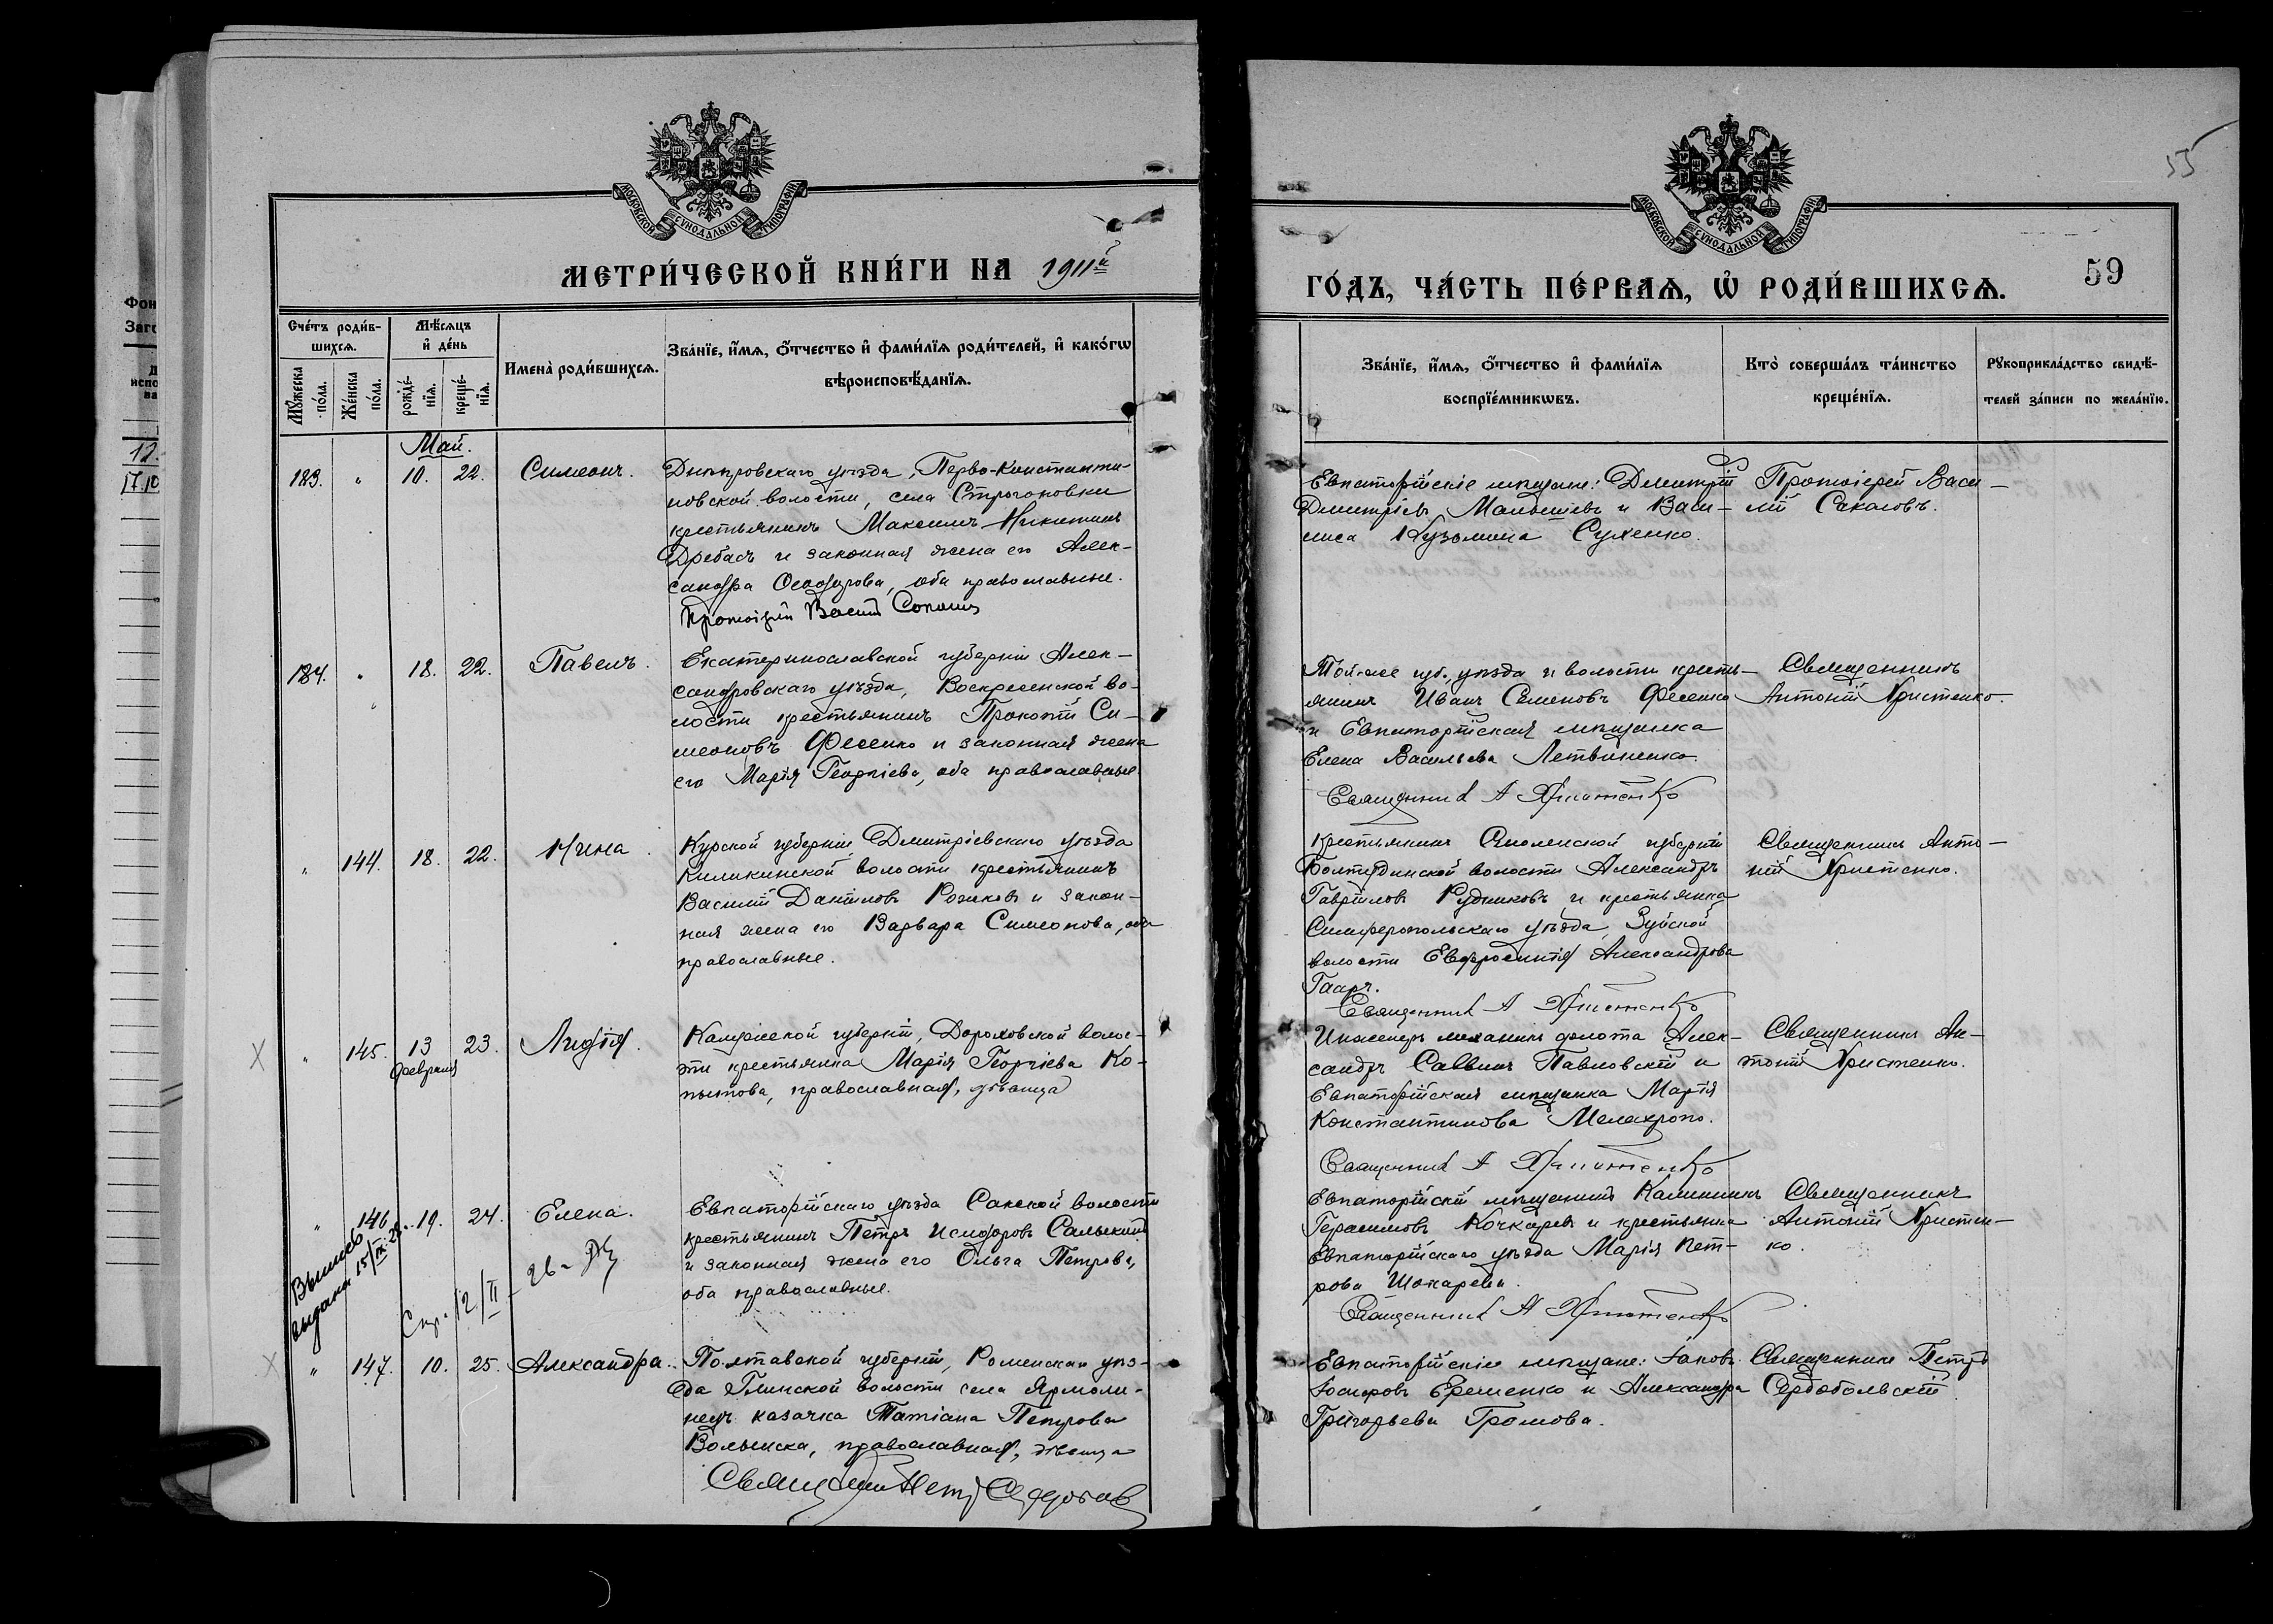 МОСКОВСКОЙ СѴНОДАЛЬНОЙ ТИПОГРАФІИ
МЕТРИ́ЧЕСКОЙ КНИ́ГИ НА 1911й
Сче́тъ роди́в-
шихсѧ.
Мѣ́сѧцъ
и҆ де́нь
Мꙋ́жеска
по́ла.
Же́нска
по́ла.
рожде́-
нїѧ.
креще́-
нїѧ.
Имена̀ роди́вшихсѧ.
Зва́нїе, и҆́мѧ, ѻ҆́тчество и҆ фами́лїѧ роди́телей, и҆ како́гѡ
вѣроисповѣ́данїѧ.
Май.
183. " 10. 22. Симеонъ.
Днѣпровскаго уѣзда, Перво-Константи-
новской волости, села Строгоновки
крестьянинъ Максимъ Никитинъ
Дребасъ и законная жена его Алек-
сандра Ѳеодорова, оба православные.
Протоіерей Василій Соколовъ
184. " 18. 22. Павелъ.
Екатеринославской губерніи Алек-
сандровскаго уѣзда, Воскресенской во-
лости крестьянинъ Прокопій Си-
меоновъ Фесенко и законная жена
его Марія Георгіева, оба православные.
" 144. 18. 22. Нина.
Курской губерніи Дмитріевскаго уѣзда
Киликинской волости крестьянинъ
Василій Даніиловъ Рожковъ и закон-
ная жена его Варвара Симеонова, оба
православные.
" 145. 13 февраля 23. Лидія.
Калужской губерніи, Дороховской волос-
ти крестьянка Марія Георгіева Ко-
пытова, православная, дѣвица
" 146. 19. 24. Елена.
Евпаторійскаго уѣзда Сакской волости
крестьянинъ Петръ Исидоровъ Сальский
и законная жена его Ольга Петрова,
оба православные.
выдана 15/IX 28 г.
Спр. 12/II 26 г.
" 147. 10. 25. Александра.
Полтавской губерніи, Роменскаго уѣз-
да Глинской волости села Ярмоли-
нецъ казачка Татіана Петрова
Волынска, православная, дѣвица
55
МОСКОВСКОЙ СѴНОДАЛЬНОЙ ТИПОГРАФІИ
ГО́ДЪ, ЧА́СТЬ ПЕ́РВАѦ, Ѡ҆ РОДИ́ВШИХСѦ.
59
Зва́нїе, и҆́мѧ, ѻ҆́тчество и҆ фами́лїѧ
воспрїе́мникѡвъ.
Кто̀ соверша́лъ та́инство
креще́нїѧ.
Рꙋкоприкла́дство свидѣ́-
телей за́писи по жела́нїю.
Евпаторійскіе мѣщане: Дмитрій
Дмитріевъ Малышевъ и Васи-
лиса Кузьмина Сухенко.
Протоіерей Васи-
лій Соколовъ.
Той-же губ., уѣзда и волости кресть-
янинъ Иванъ Семеновъ Фесенко
и Евпаторійская мѣщанка
Елена Васильева Летвиненко.
Священникъ А Христенко
Священникъ
Антоній Христенко.
Крестьянинъ Смоленской губерніи
Болтутинской волости Александръ
Гавріиловъ Рудниковъ и крестьянка
Симферопольскаго уѣзда, Зуйской
волости Евфросинія Александрова
Гаапъ.
Священникъ А Христенко
Священникъ Анто-
ній Христенко.
Инженеръ механикъ флота Алек-
сандръ Саввинъ Павловскій и
Евпаторійская мѣщанка Марія
Константинова Мелахропо.
Священникъ А Христенко
Священникъ Ан-
тоній Христенко.
Евпаторійскій мѣщанинъ Калинникъ
Герасимовъ Кочкаревъ и крестьянка
Евпаторійскаго уѣзда Марія Пет-
рова Шокарева.
Священникъ А Христенко
Священникъ
Антоній Христен-
ко.
Евпаторійскіе мѣщане: Іаковъ
Іосифовъ Еременко и Александра
Григорьева Громова.
Священникъ Петръ
Сердобольскій.